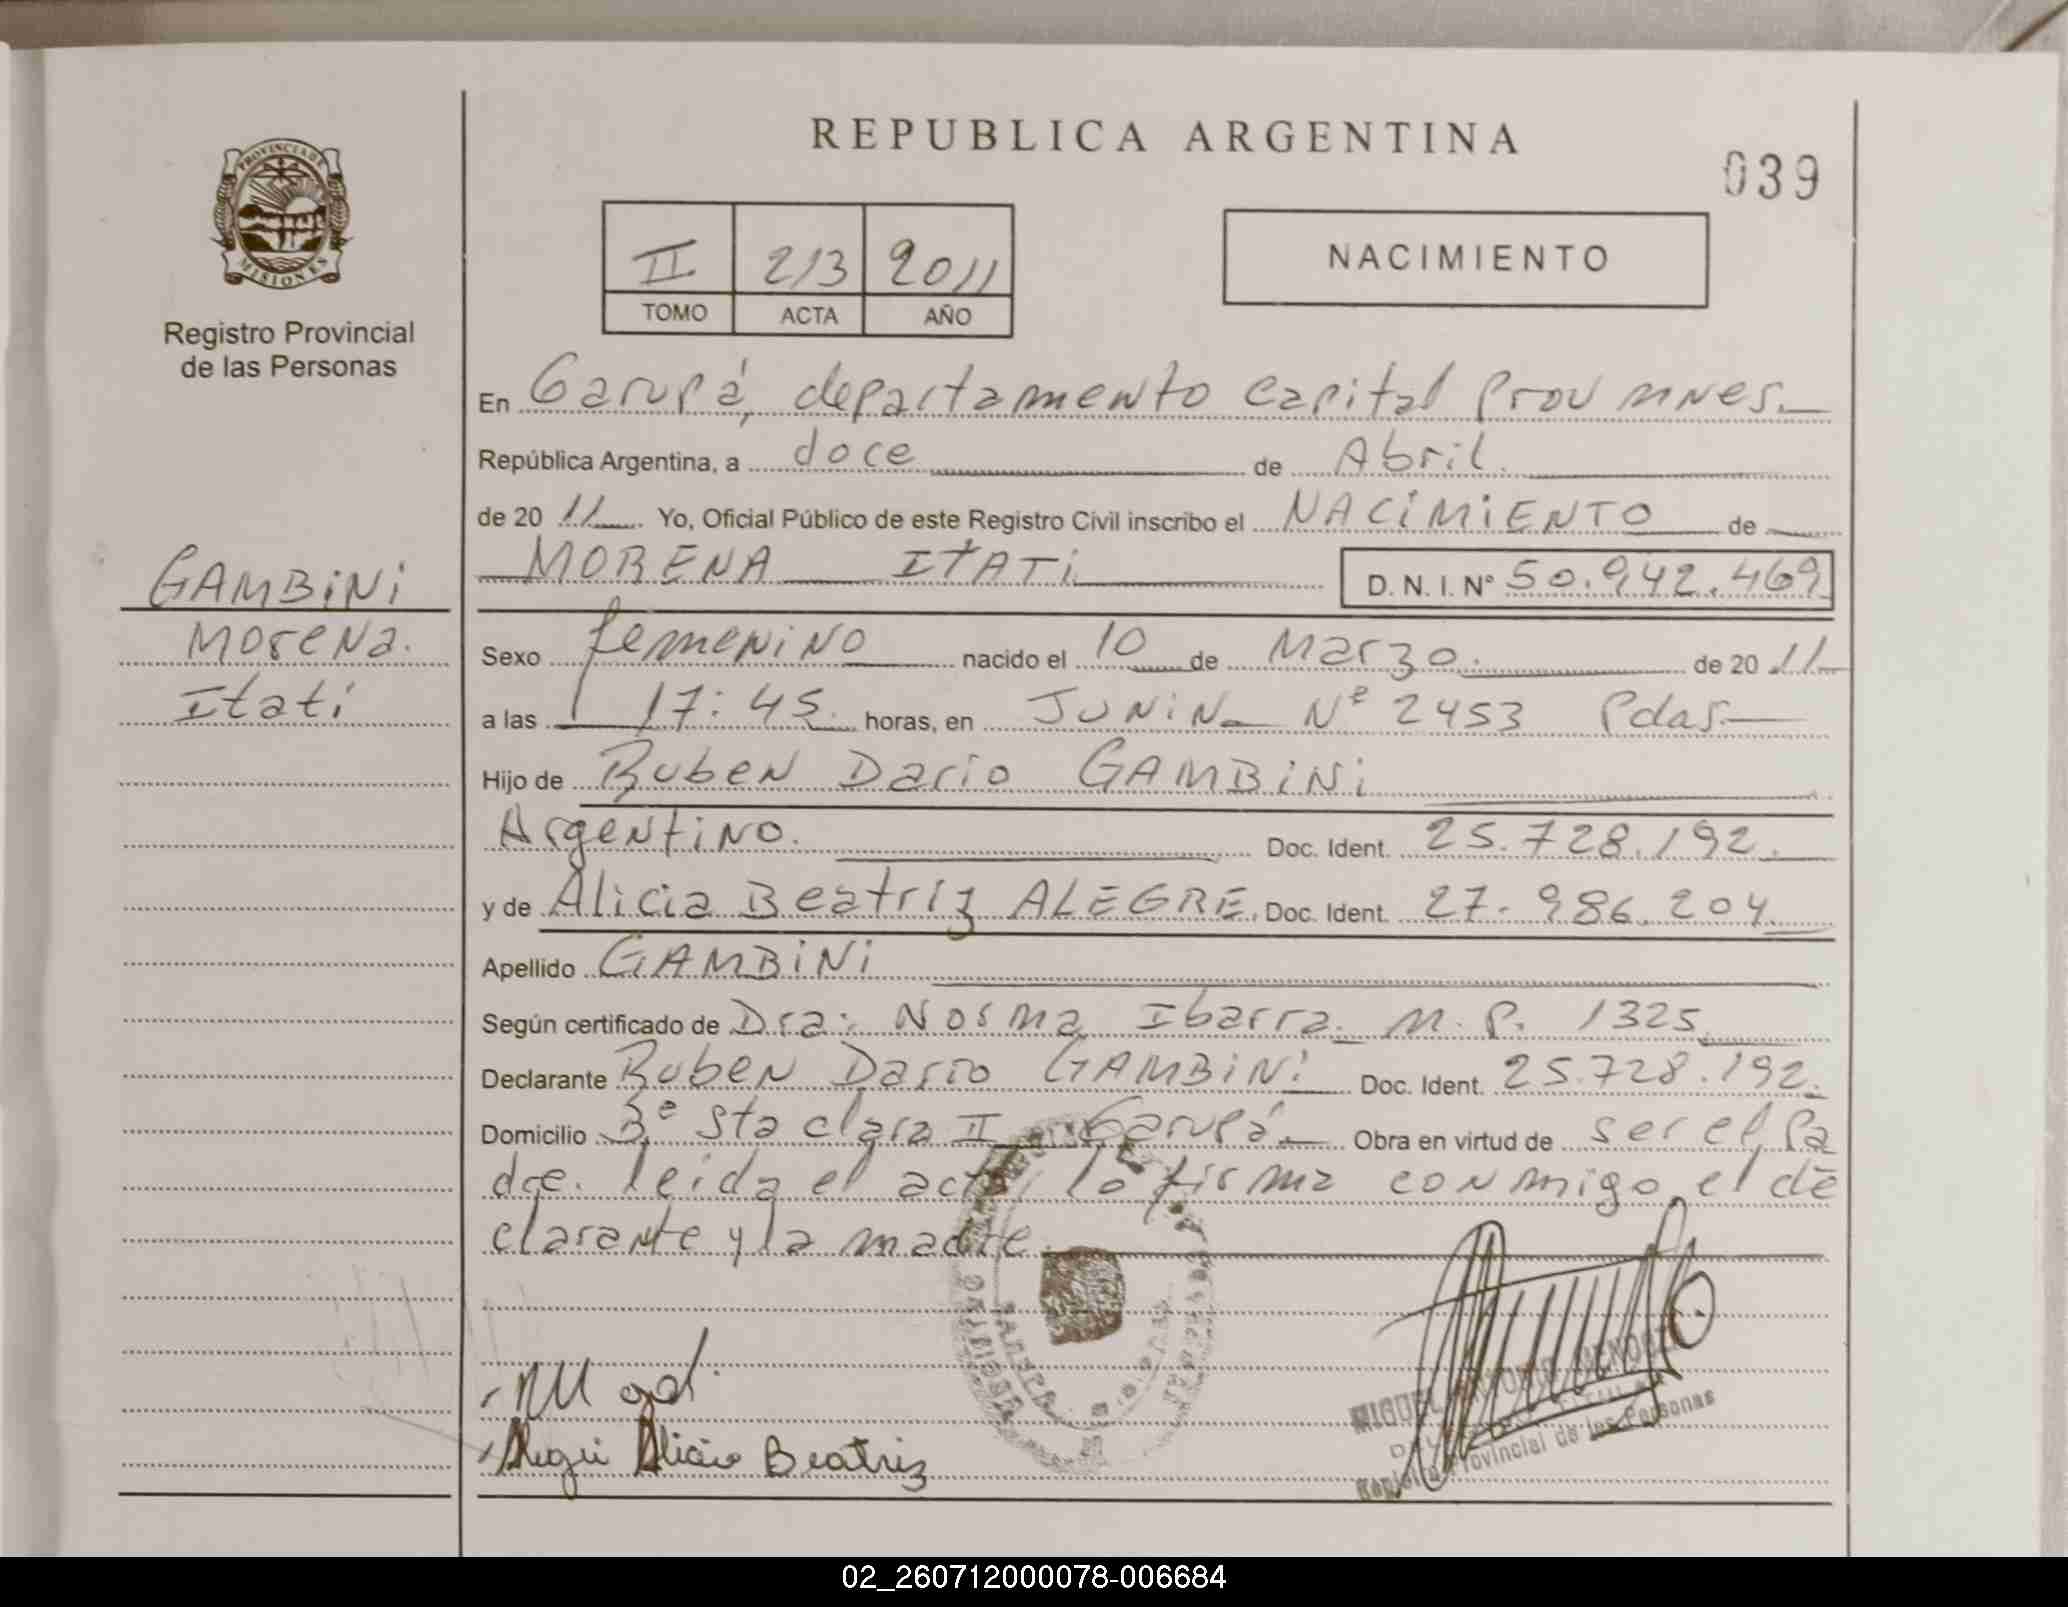 REPUBLICA ARGENTINA
039
PROVINCIA DE
MISIONES
Registro Provincial
de las Personas
II 213 2011
TOMO ACTA AÑO
NACIMIENTO
En Garupá, departamento Capital Prov mnes.
República Argentina, a doce de Abril.
de 20 11. Yo, Oficial Público de este Registro Civil inscribo el NACIMIENTO de
MORENA ITATI D. N. I. N° 50.942.469
GAMBINI
Morena.
Itatí
Sexo femenino nacido el 10 de Marzo. de 20 11
a las 17:45. horas, en JUNIN N° 2453 Pdas.
Hijo de Ruben Dario GAMBINI
Argentino. Doc. Ident. 25.728.192.
y de Alicia Beatriz ALEGRE. Doc. Ident. 27.986.204.
Apellido GAMBINI
Según certificado de Dra: Norma Ibarra. M.P. 1325
Declarante Ruben Dario GAMBINI Doc. Ident. 25.728.192.
Domicilio B° Sta clara II Garupá Obra en virtud de ser el pa
dre. leida el acta, la firma conmigo, el de
clarante y la madre.
Alicia Beatriz
MIGUEL ANTONIO MENDOZA
Registro Provincial de las Personas
02_260712000078-006684